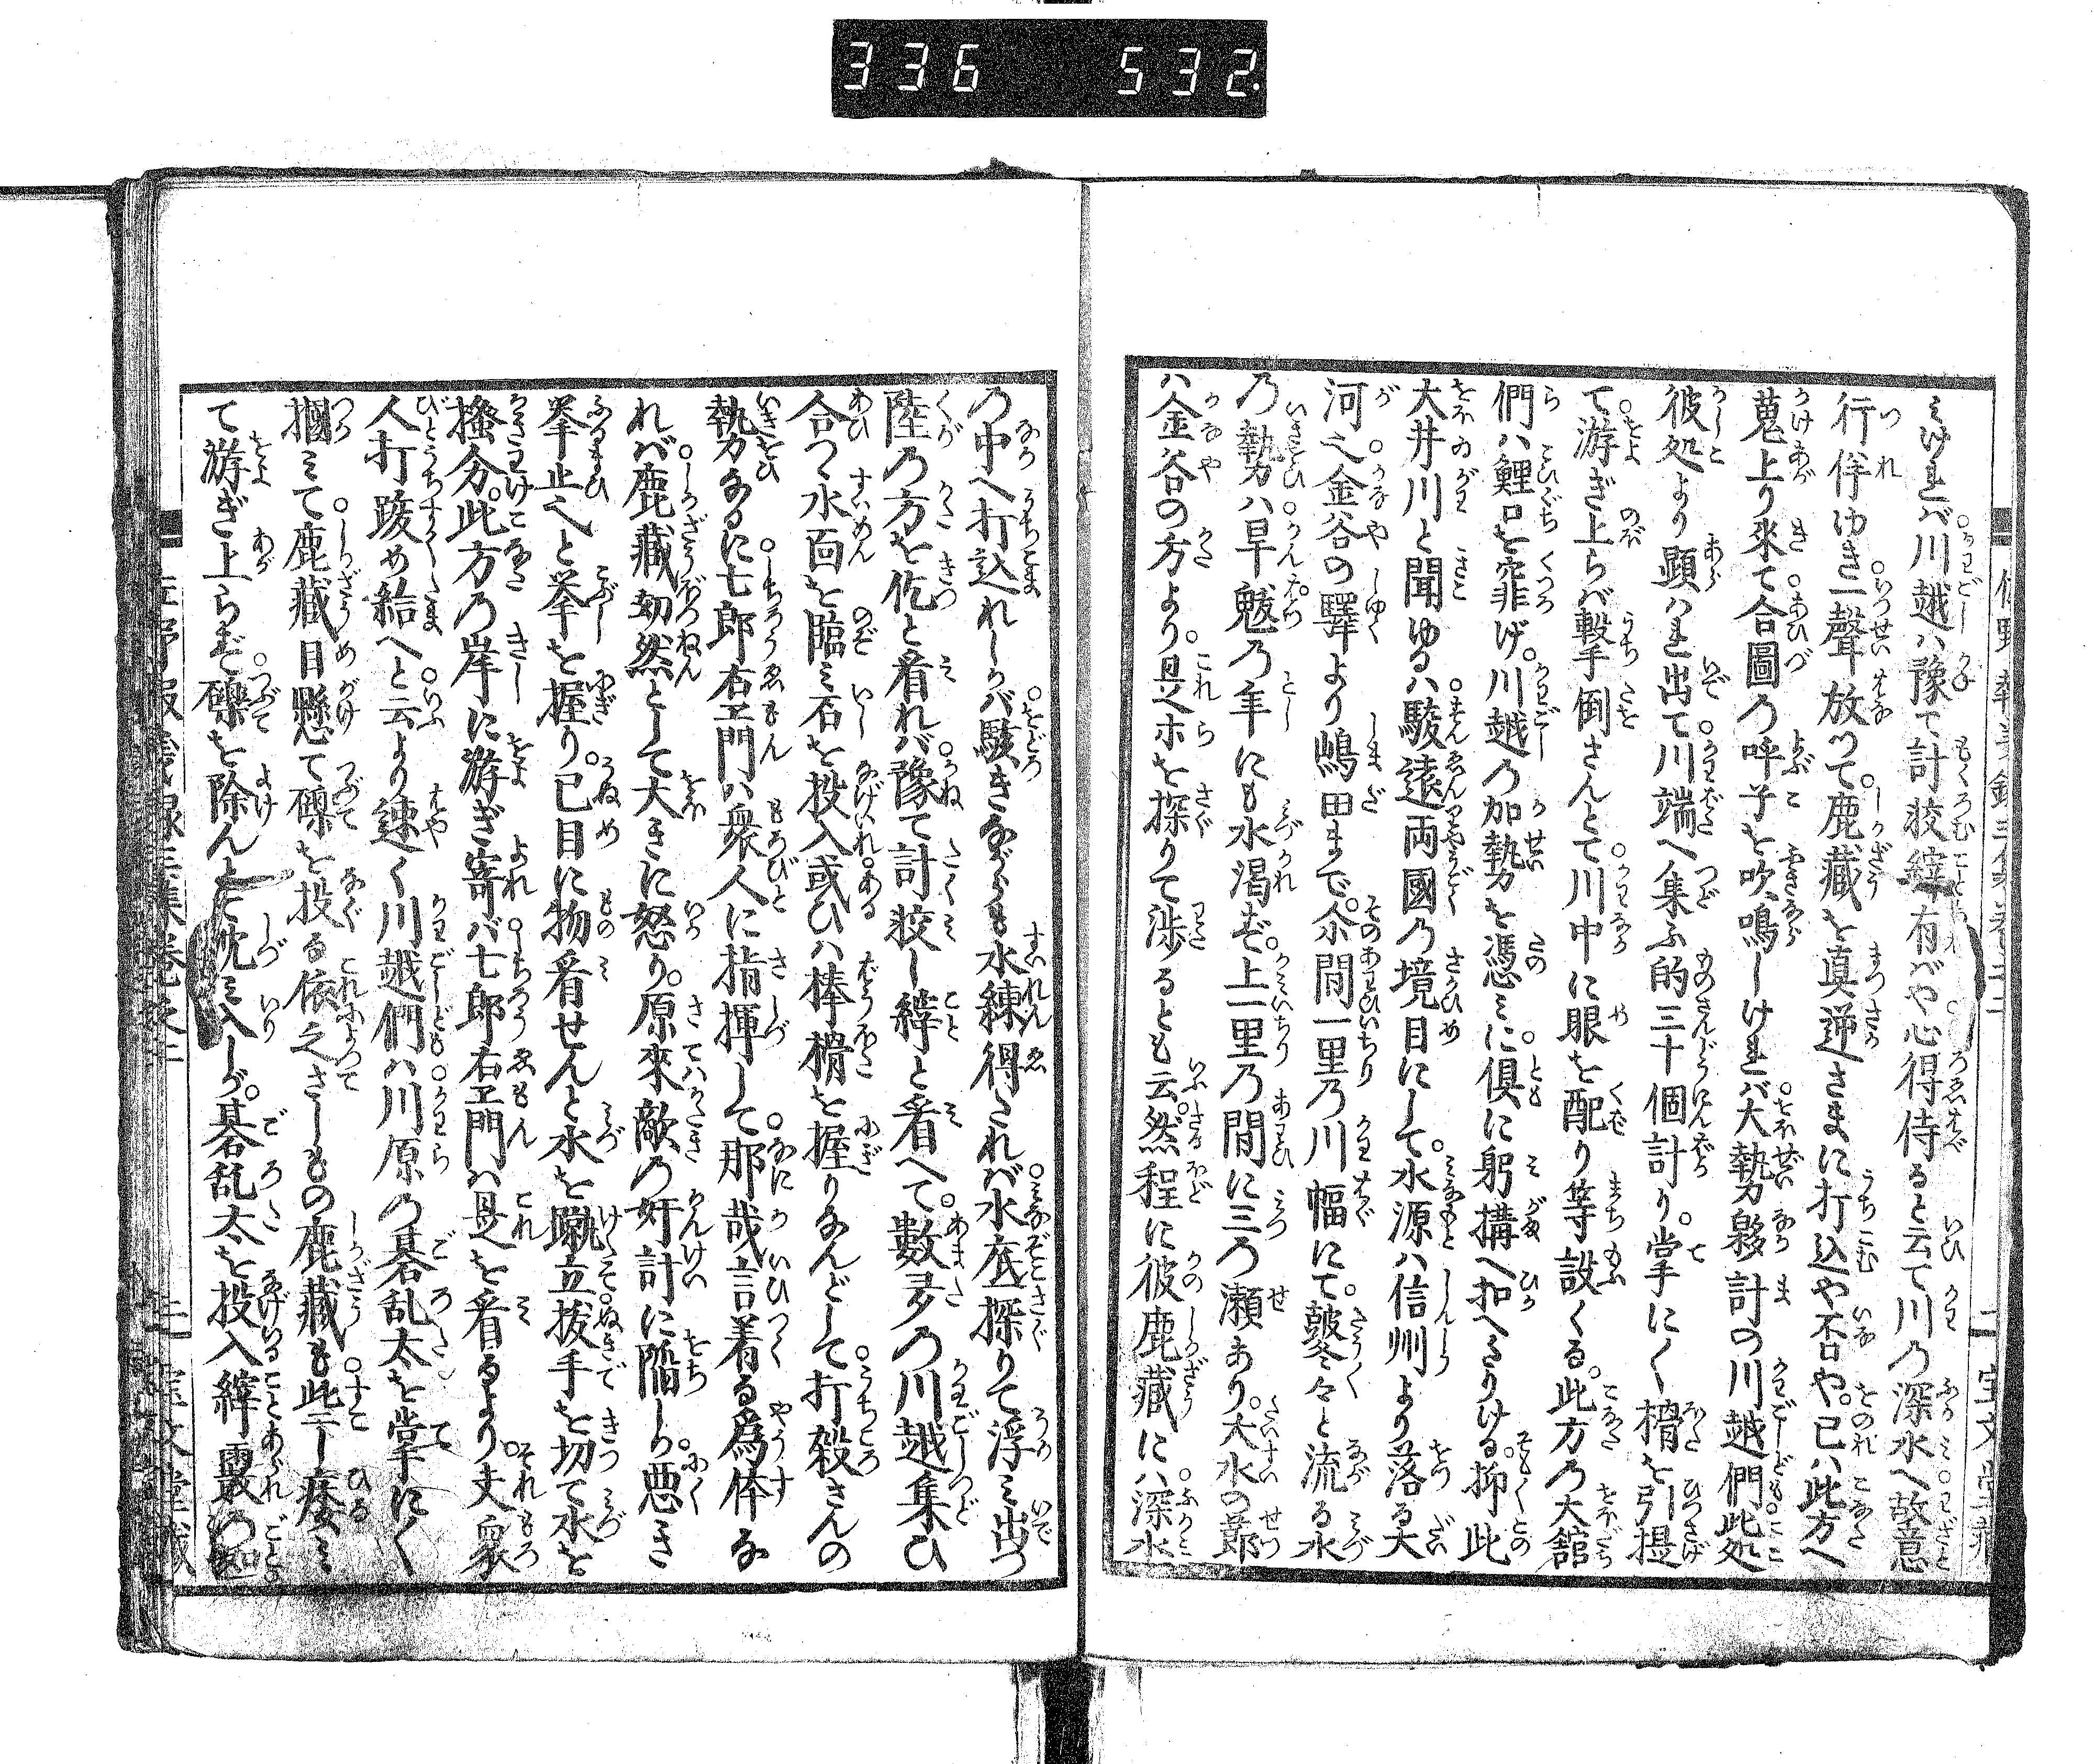 336 532
みけれバ川越ハ豫て計挍縡有バや心得侍ると云て川の深水へ故意
行伴ゆき一聲放つて鹿藏を真逆さまに打込や否や。已ハ此方へ
蒐上り來て合圖の呼子を吹鳴しけれバ大勢夥計の川越們此処
彼処より顕ハれ出て川端へ集ふ的三十個計り。掌にく榾を引提
て游ぎ上らバ撃手倒さんとて川中に眼を配り等設くる。此方の大舘
們ハ鯉口を窄げ。川越の加勢を憑ミに倶に躬搆へ扣へさりける。抑此
大井川と聞ゆるハ駿遠両國の境目にして。水源ハ信州より落る大
河之金谷の驛より嶋田まで。尒間一里の川幅にて。鼕々と流る水
の勢ハ旱魃の年にも水渇ず。上一里の間に三つ瀬あり。大水の節
ハ金谷の方より。是ホを探りて渉るとも云。然程に彼鹿藏にハ深水
の中へ打込れしかバ駭きながらも水練得たれバ水底探りて浮ミ出つ
陸の方を仡と看れバ豫て計挍し縡と看へて。數多の川越集ひ
合つゝ水面を臨ミ石を投入或ひハ棒榾を握りなんどして打殺さんの
勢なるに七郎右エ門ハ衆人に指揮して那哉言着る爲体な
れバ鹿藏勃然として大きに怒り。原來敵の奸計に陷し候。悪き
挙止へと拳を握り。已目に物看せんと水を蹴立抜手を切て水を
掻分。此方の岸に游ぎ寄バ七郎右エ門ハ是を看るより。夫衆
人打蹂め給へと云より速く川越們ハ川原の碁乱太を掌にく
摑ミて鹿藏目懸て礫を投る依之さしもの鹿藏も些し痿ミ
て游ぎ上らずて礫を除んとて沈ミ入しが。碁乱太を投入縡霰の如